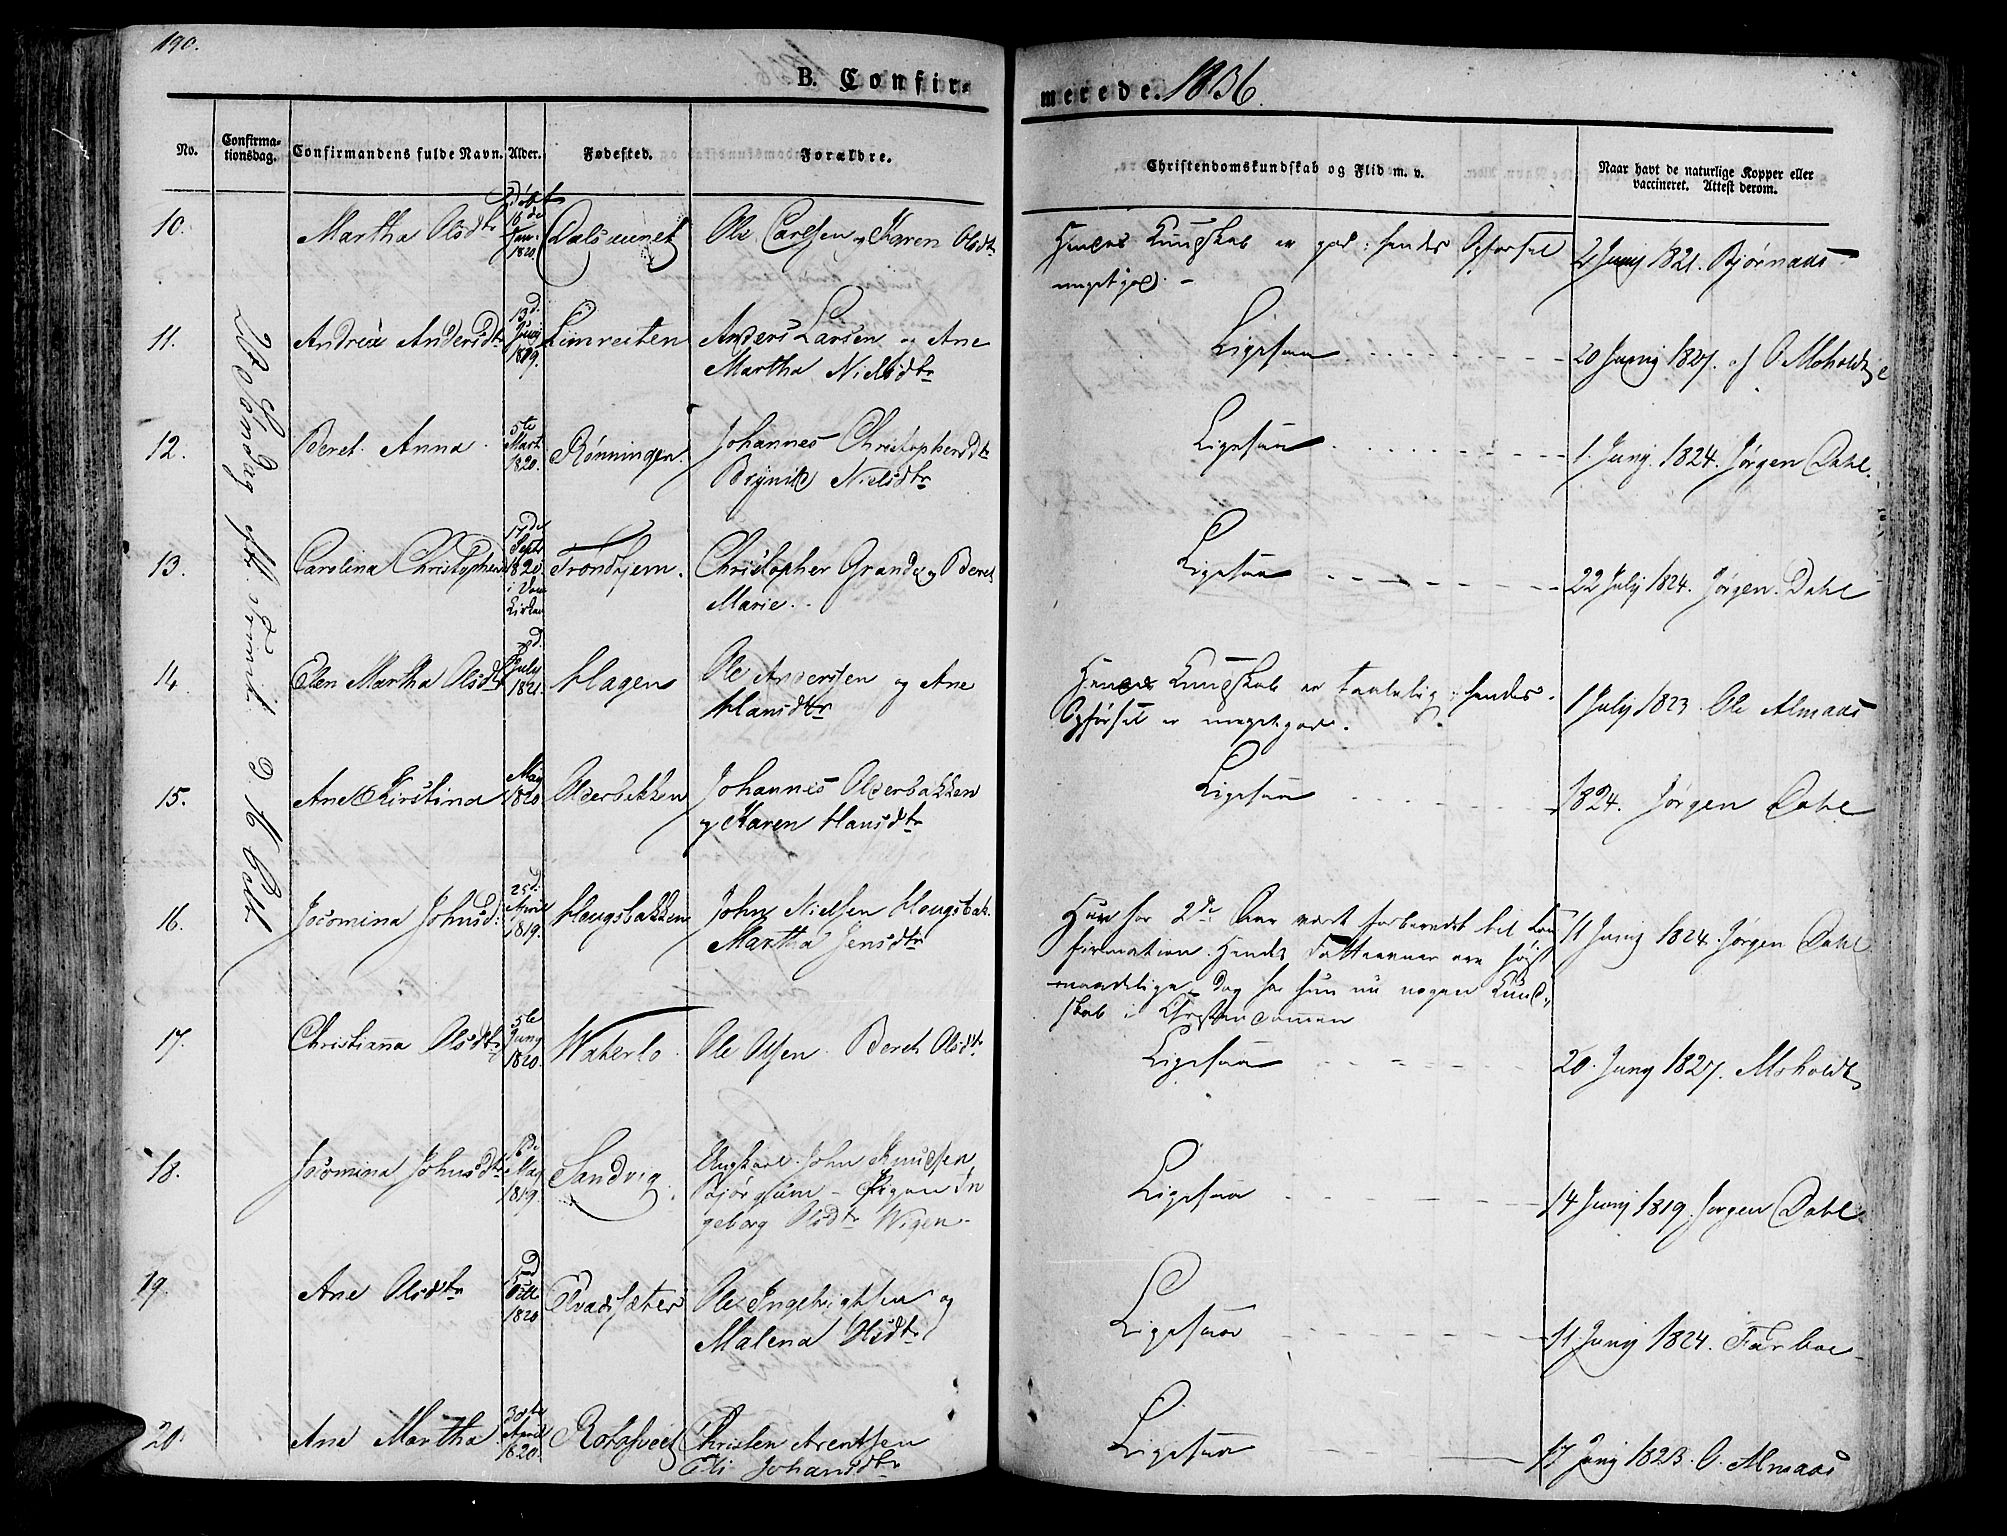 190.
B. Confirmerede. 1836.
No.
Confirmationsdag.
Confirmandens fulde Navn.
Alder.
Fødested.
Forældre.
Christendomskundskab og Flid m. v.
Naar havt de naturlige Kopper eller vaccineret. Attest derom.
10. Martha Olsdtr 1820 Dalsaunet Ole Carlsen og Karen Olsdtr
Hendes Kundskab er god; hendes Opførsel
meget god. 2 Junij 1821. Bjørnaas
11. Andrea Andersdtr 13d. Junij 1819. Anders Larsen og Ane
Martha Nielsdtr
Ligesaa 20 Junij 1827. af O Moholdt
12. Beret Anna 5te Mart. 1820. Rønningen. Johannes Christophersdtr
Nielsdtr
Ligesaa 1. Junij 1824. Jørgen Dahl.
13. Carolina Christophers 17de Septr 1820 i Dom Kirken Trondhjem. Christopher Grande og Beret
Marie.
Ligesaa 22 July 1824. Jørgen Dahl
14. Elen Martha Olsdtr July 1821. Hagen Ole Anderssen og Ane
Hansdtr
Hendes Kundskab er taalelig; hendes
Opførsel er meget god. 1 July 1823. Ole Almaas
15. Ane Kirstina May 1820 Olderbakken Johannes Olderbakken
og Karen Hansdtr
Ligesaa 1824. Jørgen Dahl
16. Jocomina Johnsd. 25d. April 1819. Haugsbakken John Nielsen Haugsbak.
Martha Jensdtr
Hun har 2de Aar været forberedet til Con
firmation. Hendes Fatteevner ere høist
maadelige, dog har hun nu nogen Kund-
skab i Christendommen 11 Junij 1824. Jørgen Dahl
17. Christianna Olsdtr 5te Junij 1820. Waterlo. Ole Olsen. Beret Olsdtr
Ligesaa 20. Junij 1827. Moholdt
18. Jocomina Johnsdtr 6de May 1819. Sandvig Ungkarl John Knudsen
Bjørgum - Pigen In
geborg Olsdtr Wigen.
Ligesaa 14 Junij 1819. Jørgen Dahl
19. Ane Olsdtr 1820 Evadsæter Ole Ingebrigtsen og
Malena Olsdtr
Ligesaa 11 Junij 1824. Farboe
20. Ane Martha 30te April 1820. Christen Arentsen
Eli Johansdtr
Ligesaa 17 Junij 1823. O. Almaas